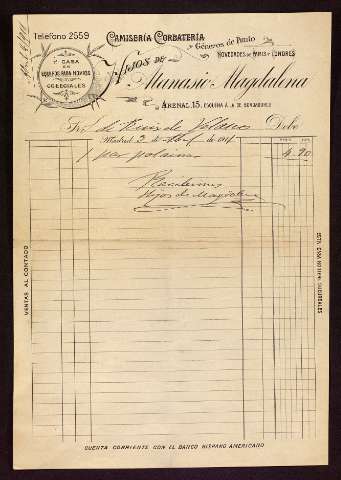 Teléfono 2559
CAMISERÍA CORBATERÍA
Géneros de Punto
NOVEDADES DE PARIS Y LONDRES
1ª CASA
EN
EQUIPOS PARA NOVIOS
Y
COLEGIALES
HIJOS DE
Atanasio Magdalena
ARENAL, 15, ESQUINA Á LA DE BORDADORES
Sr. D. de Debe
Madrid 3 de de 191
1 par 4.90
Recibimos
Hijos de Magdalena
VENTAS AL CONTADO
ESTA CASA NO TIENE SUCURSALES
CUENTA CORRIENTE CON EL BANCO HISPANO AMERICANO